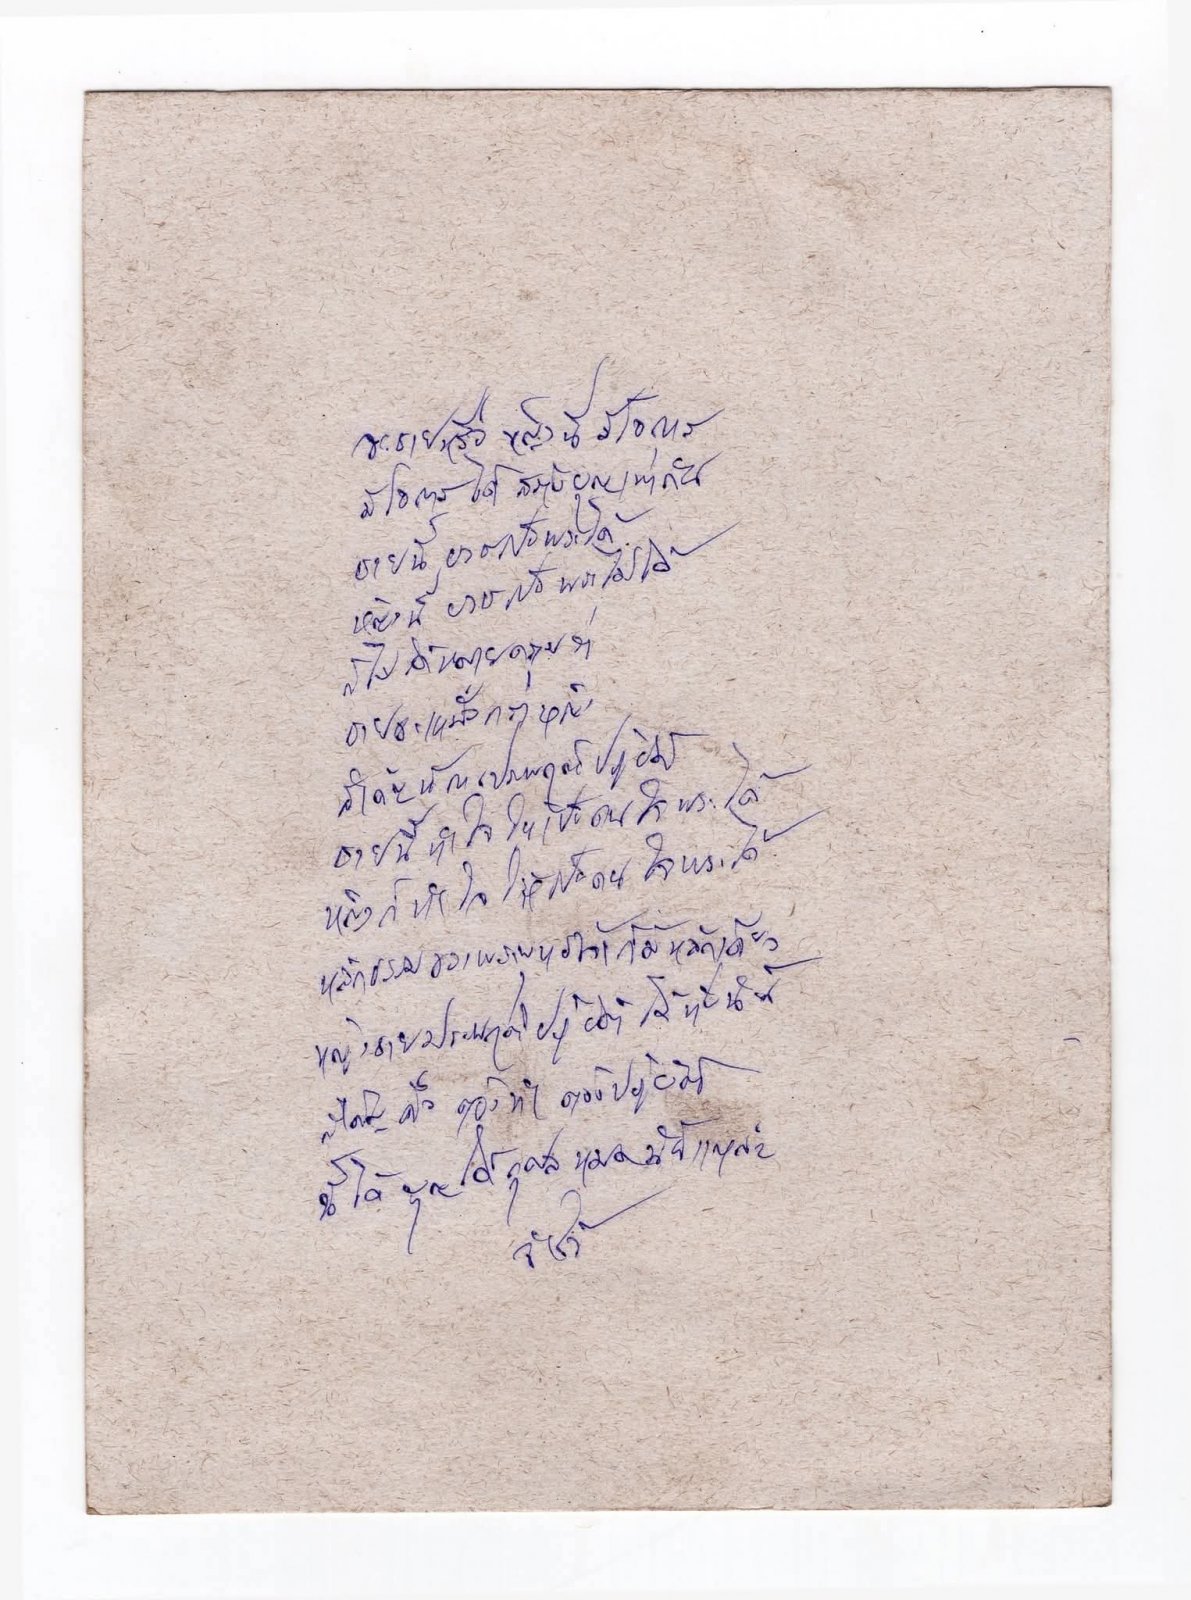 จะชายหรือ หญิงนี้ มีโอกาส
มีโอกาส ได้ สร้างบุญเท่ากัน
ชายนี้ บวชเป็นพระได้
หญิงนี้ บวชเป็น พระไม่ได้
ก็ไม่ได้หมายความว่า
ชายชนะเหนือกว่าหญิง
นี้ การประพฤติปฏิบัติ
ชายนี้ ทำใจ ให้เป็น ใจพระได้
หญิงก็ ทำใจ ให้เป็น ใจพระได้
หลักธรรมของพระพุทธเจ้าก็มีหลักเดียว
หญิงชายประพฤติปฏิบัติ ได้
ต้องทำ ต้องปฏิบัติ
นี้ได้ บุญ ได้ กุศล